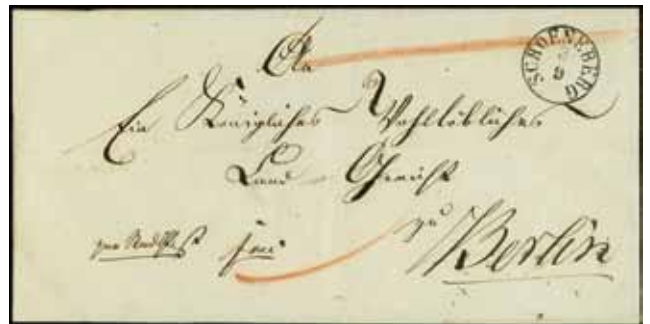 SCHOENEBERG
9
An
Ein Königliches Wohllöbliches
Land Gericht
zu
frei
Berlin